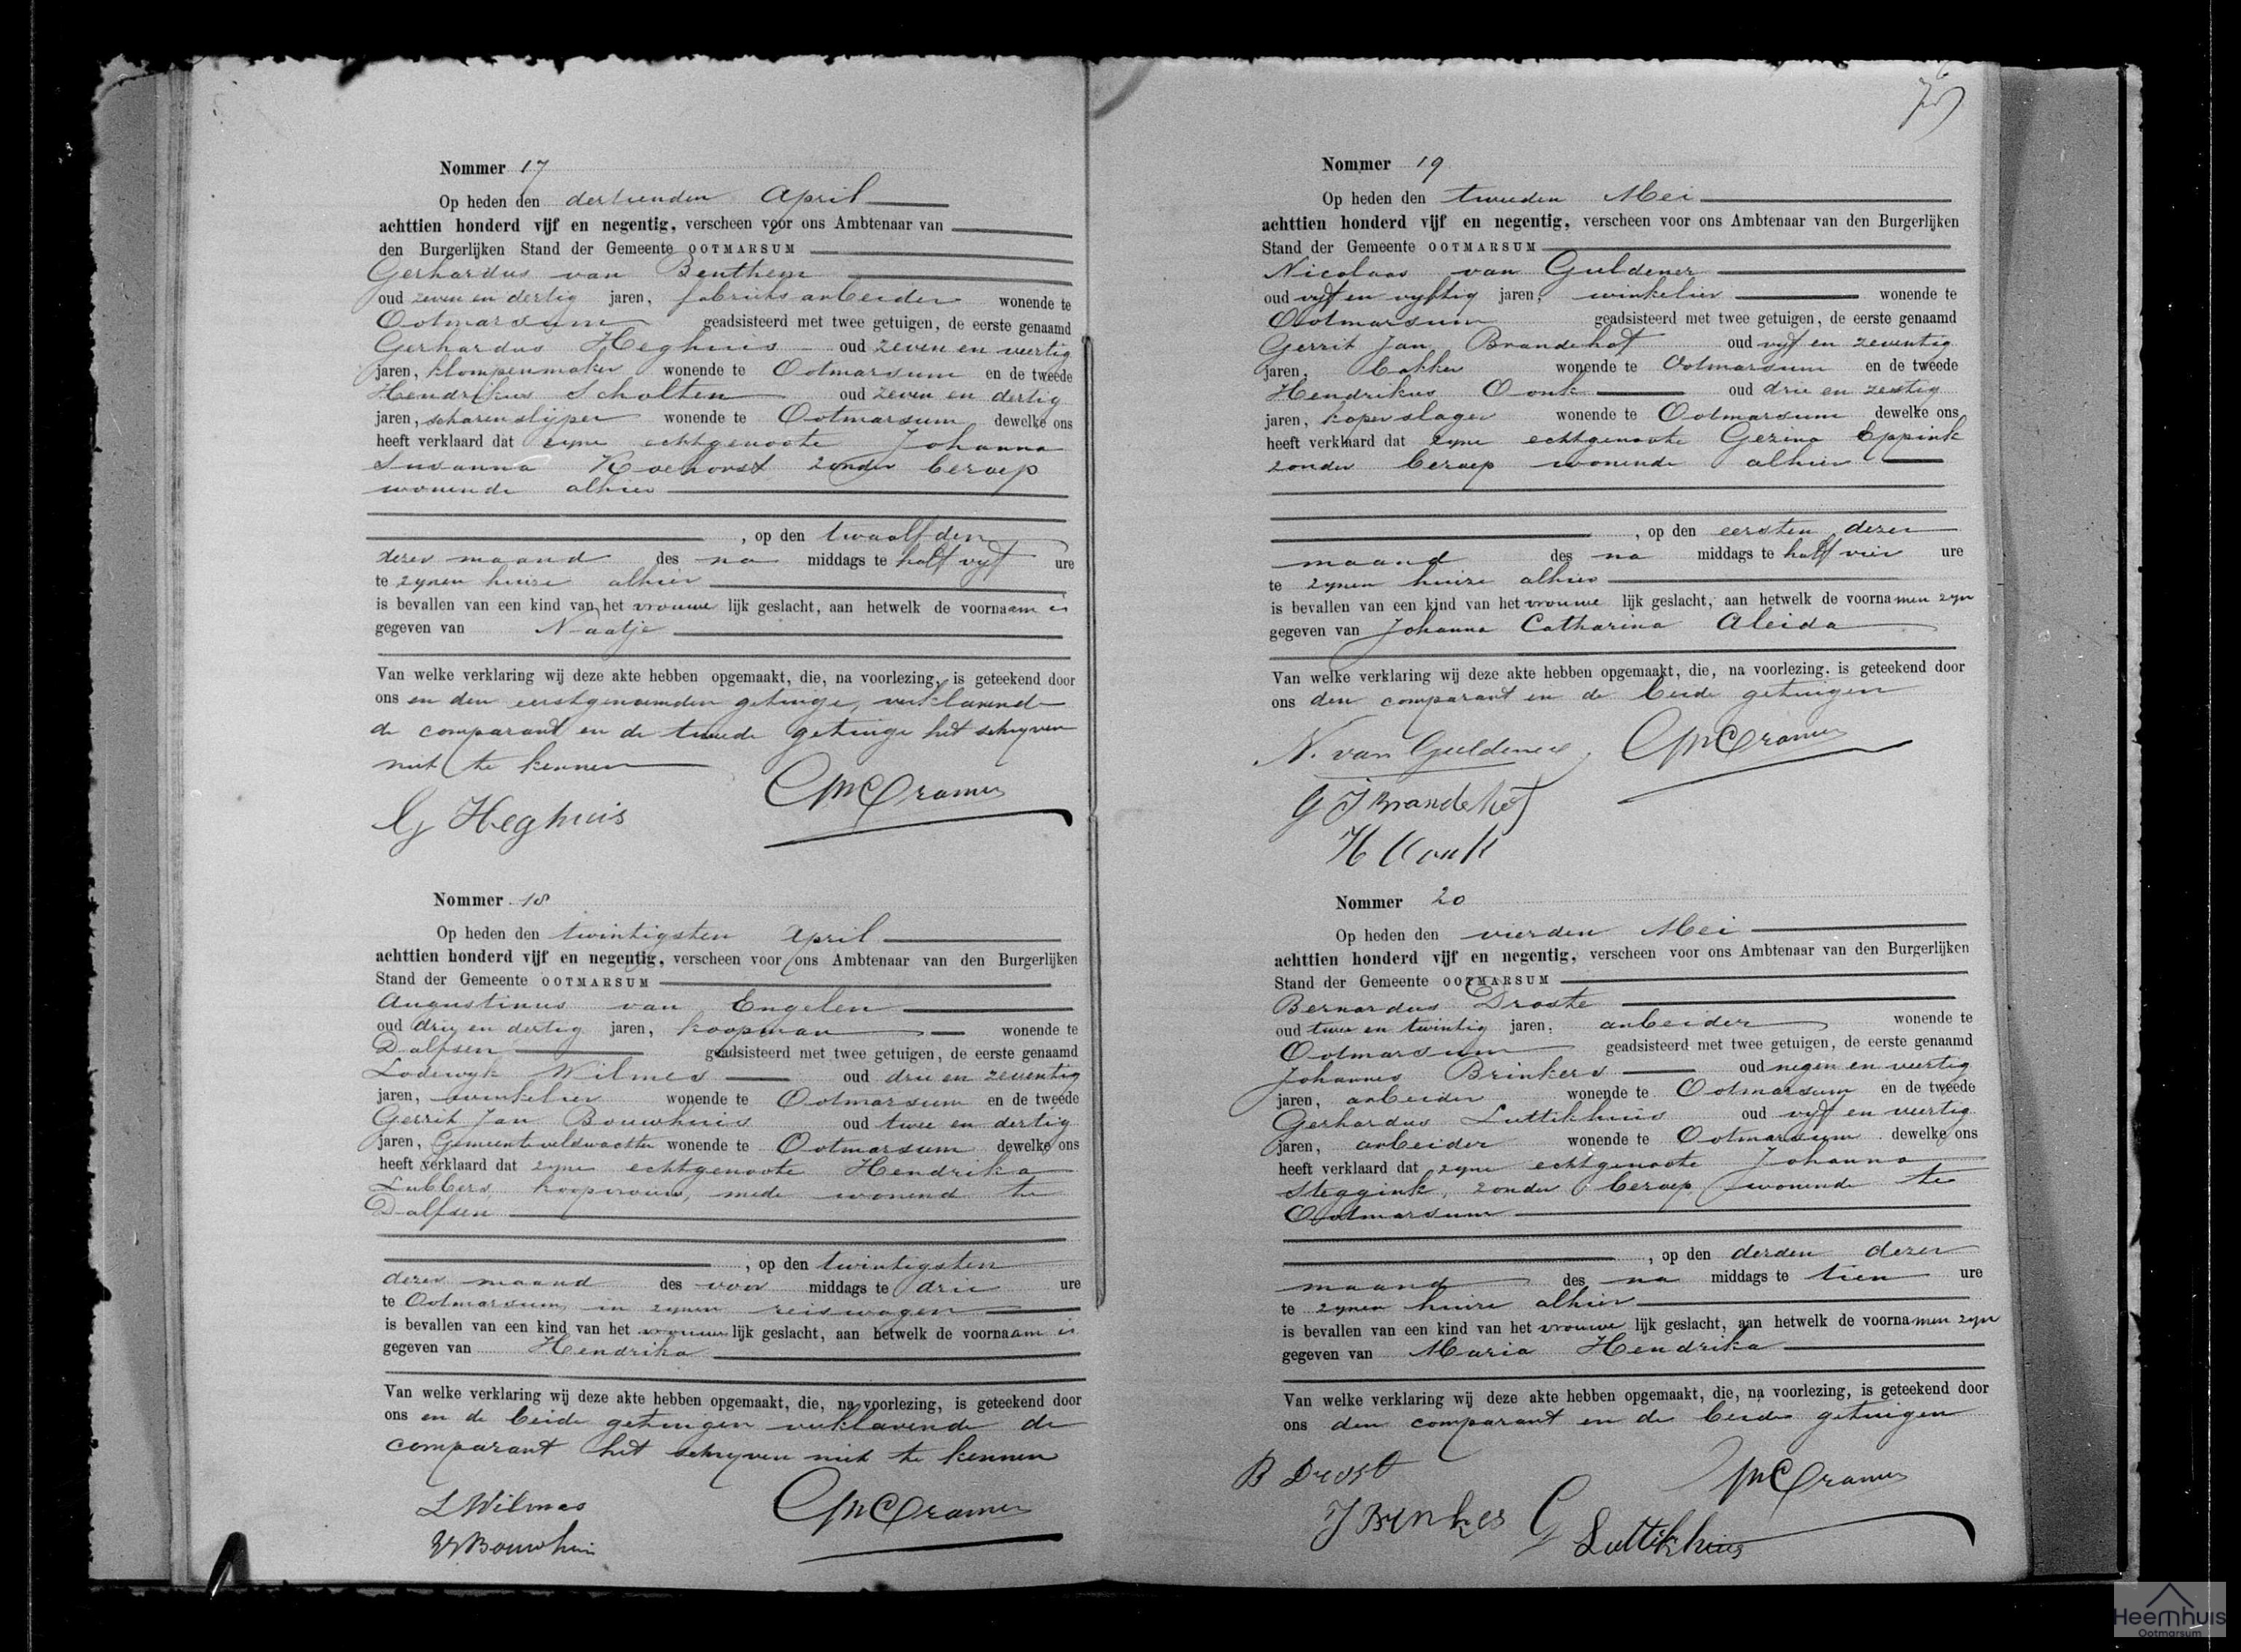 Nommer 17
Op heden den dertienden April
achttien honderd vijf en negentig, verscheen voor ons Ambtenaar van
den Burgerlijken Stand der Gemeente OOTMARSUM
Gerhardus van Benthem
oud zeven en dertig jaren, fabrieksarbeider wonende te
Ootmarsum geadsisteerd met twee getuigen, de eerste genaamd
Gerhardus Heghuis oud zeven en veertig
jaren, klompenmaker wonende te Ootmarsum en de tweede
Hendrikus Scholten oud zeven en dertig
jaren, scharenslijper wonende te Ootmarsum dewelke ons
heeft verklaard dat zyne echtgenoote Johanna
Susanna Koehorst zonder beroep
wonende alhier
, op den twaalfden
dezer maand des na middags te half vyf ure
te zynen huize alhier
is bevallen van een kind van het vrouwe lijk geslacht, aan hetwelk de voornaam is
gegeven van Naatje
Van welke verklaring wij deze akte hebben opgemaakt, die, na voorlezing, is geteekend door
ons en den eerstgenoemden getuige, verklarende
de comparant en de tweede getuige het schryven
niet te kennen
G Heghuis Cramer
Nommer 18
Op heden den twintigsten April
achttien honderd vijf en negentig, verscheen voor ons Ambtenaar van den Burgerlijken
Stand der Gemeente OOTMARSUM
Augustinus van Engelen
oud drie en dertig jaren, koopman wonende te
Dalfsen geadsisteerd met twee getuigen, de eerste genaamd
Lodewyk Wilmes oud drie en zeventig
jaren, winkelier wonende te Ootmarsum en de tweede
Gerrit Jan Bouwhuis oud twee en dertig
jaren, Gemeenteveldwachter wonende te Ootmarsum dewelke ons
heeft verklaard dat zyne echtgenoote Hendrika
Lubbers koopvrouw, mede wonend te
Dalfsen
, op den twintigsten
dezer maand des voor middags te drie ure
te Ootmarsum in zynen reiswagen
is bevallen van een kind van het vrouwe lijk geslacht, aan hetwelk de voornaam is
gegeven van Hendrika
Van welke verklaring wij deze akte hebben opgemaakt, die, na voorlezing, is geteekend door
ons en de beide getuigen verklarende de
comparant het schryven niet te kennen
L Wilmes Cramer
Bouwhuis
Nommer 19
Op heden den tweeden Mei
achttien honderd vijf en negentig, verscheen voor ons Ambtenaar van den Burgerlijken
Stand der Gemeente OOTMARSUM
Nicolaas van Guldener
oud vyf en vyftig jaren, winkelier wonende te
Ootmarsum geadsisteerd met twee getuigen, de eerste genaamd
Gerrit Jan Brandehof oud vyf en zeventig
jaren, bakker wonende te Ootmarsum en de tweede
Hendrikus Oonk oud drie en zestig
jaren, koperslager wonende te Ootmarsum dewelke ons
heeft verklaard dat zyne echtgenoote Gezina Eppink
zonder beroep wonende alhier
, op den eersten dezer
maand des na middags te half vier ure
te zynen huize alhier
is bevallen van een kind van het vrouwe lijk geslacht, aan hetwelk de voornamen zyn
gegeven van Johanna Catharina Aleida
Van welke verklaring wij deze akte hebben opgemaakt, die, na voorlezing, is geteekend door
ons den comparant en de beide getuigen
N. van Guldener Cramer
G J Brandehof
H Oonk
Nommer 20
Op heden den vierden Mei
achttien honderd vijf en negentig, verscheen voor ons Ambtenaar van den Burgerlijken
Stand der Gemeente OOTMARSUM
Bernardus Droste
oud twee en twintig jaren, arbeider wonende te
Ootmarsum geadsisteerd met twee getuigen, de eerste genaamd
Johannes Brinkers oud negen en veertig
jaren, arbeider wonende te Ootmarsum en de tweede
Gerhardus Luttikhuis oud vyf en veertig
jaren, arbeider wonende te Ootmarsum dewelke ons
heeft verklaard dat zyne echtgenoote Johanna
Steggink, zonder beroep wonende te
Ootmarsum
, op den derden dezer
maand des na middags te tien ure
te zynen huize alhier
is bevallen van een kind van het vrouwe lijk geslacht, aan hetwelk de voornamen zyn
gegeven van Maria Hendrika
Van welke verklaring wij deze akte hebben opgemaakt, die, na voorlezing, is geteekend door
ons den comparant en de beide getuigen
B Drost Cramer
J Brinkers G Luttikhuis
Heemhuis
Ootmarsum